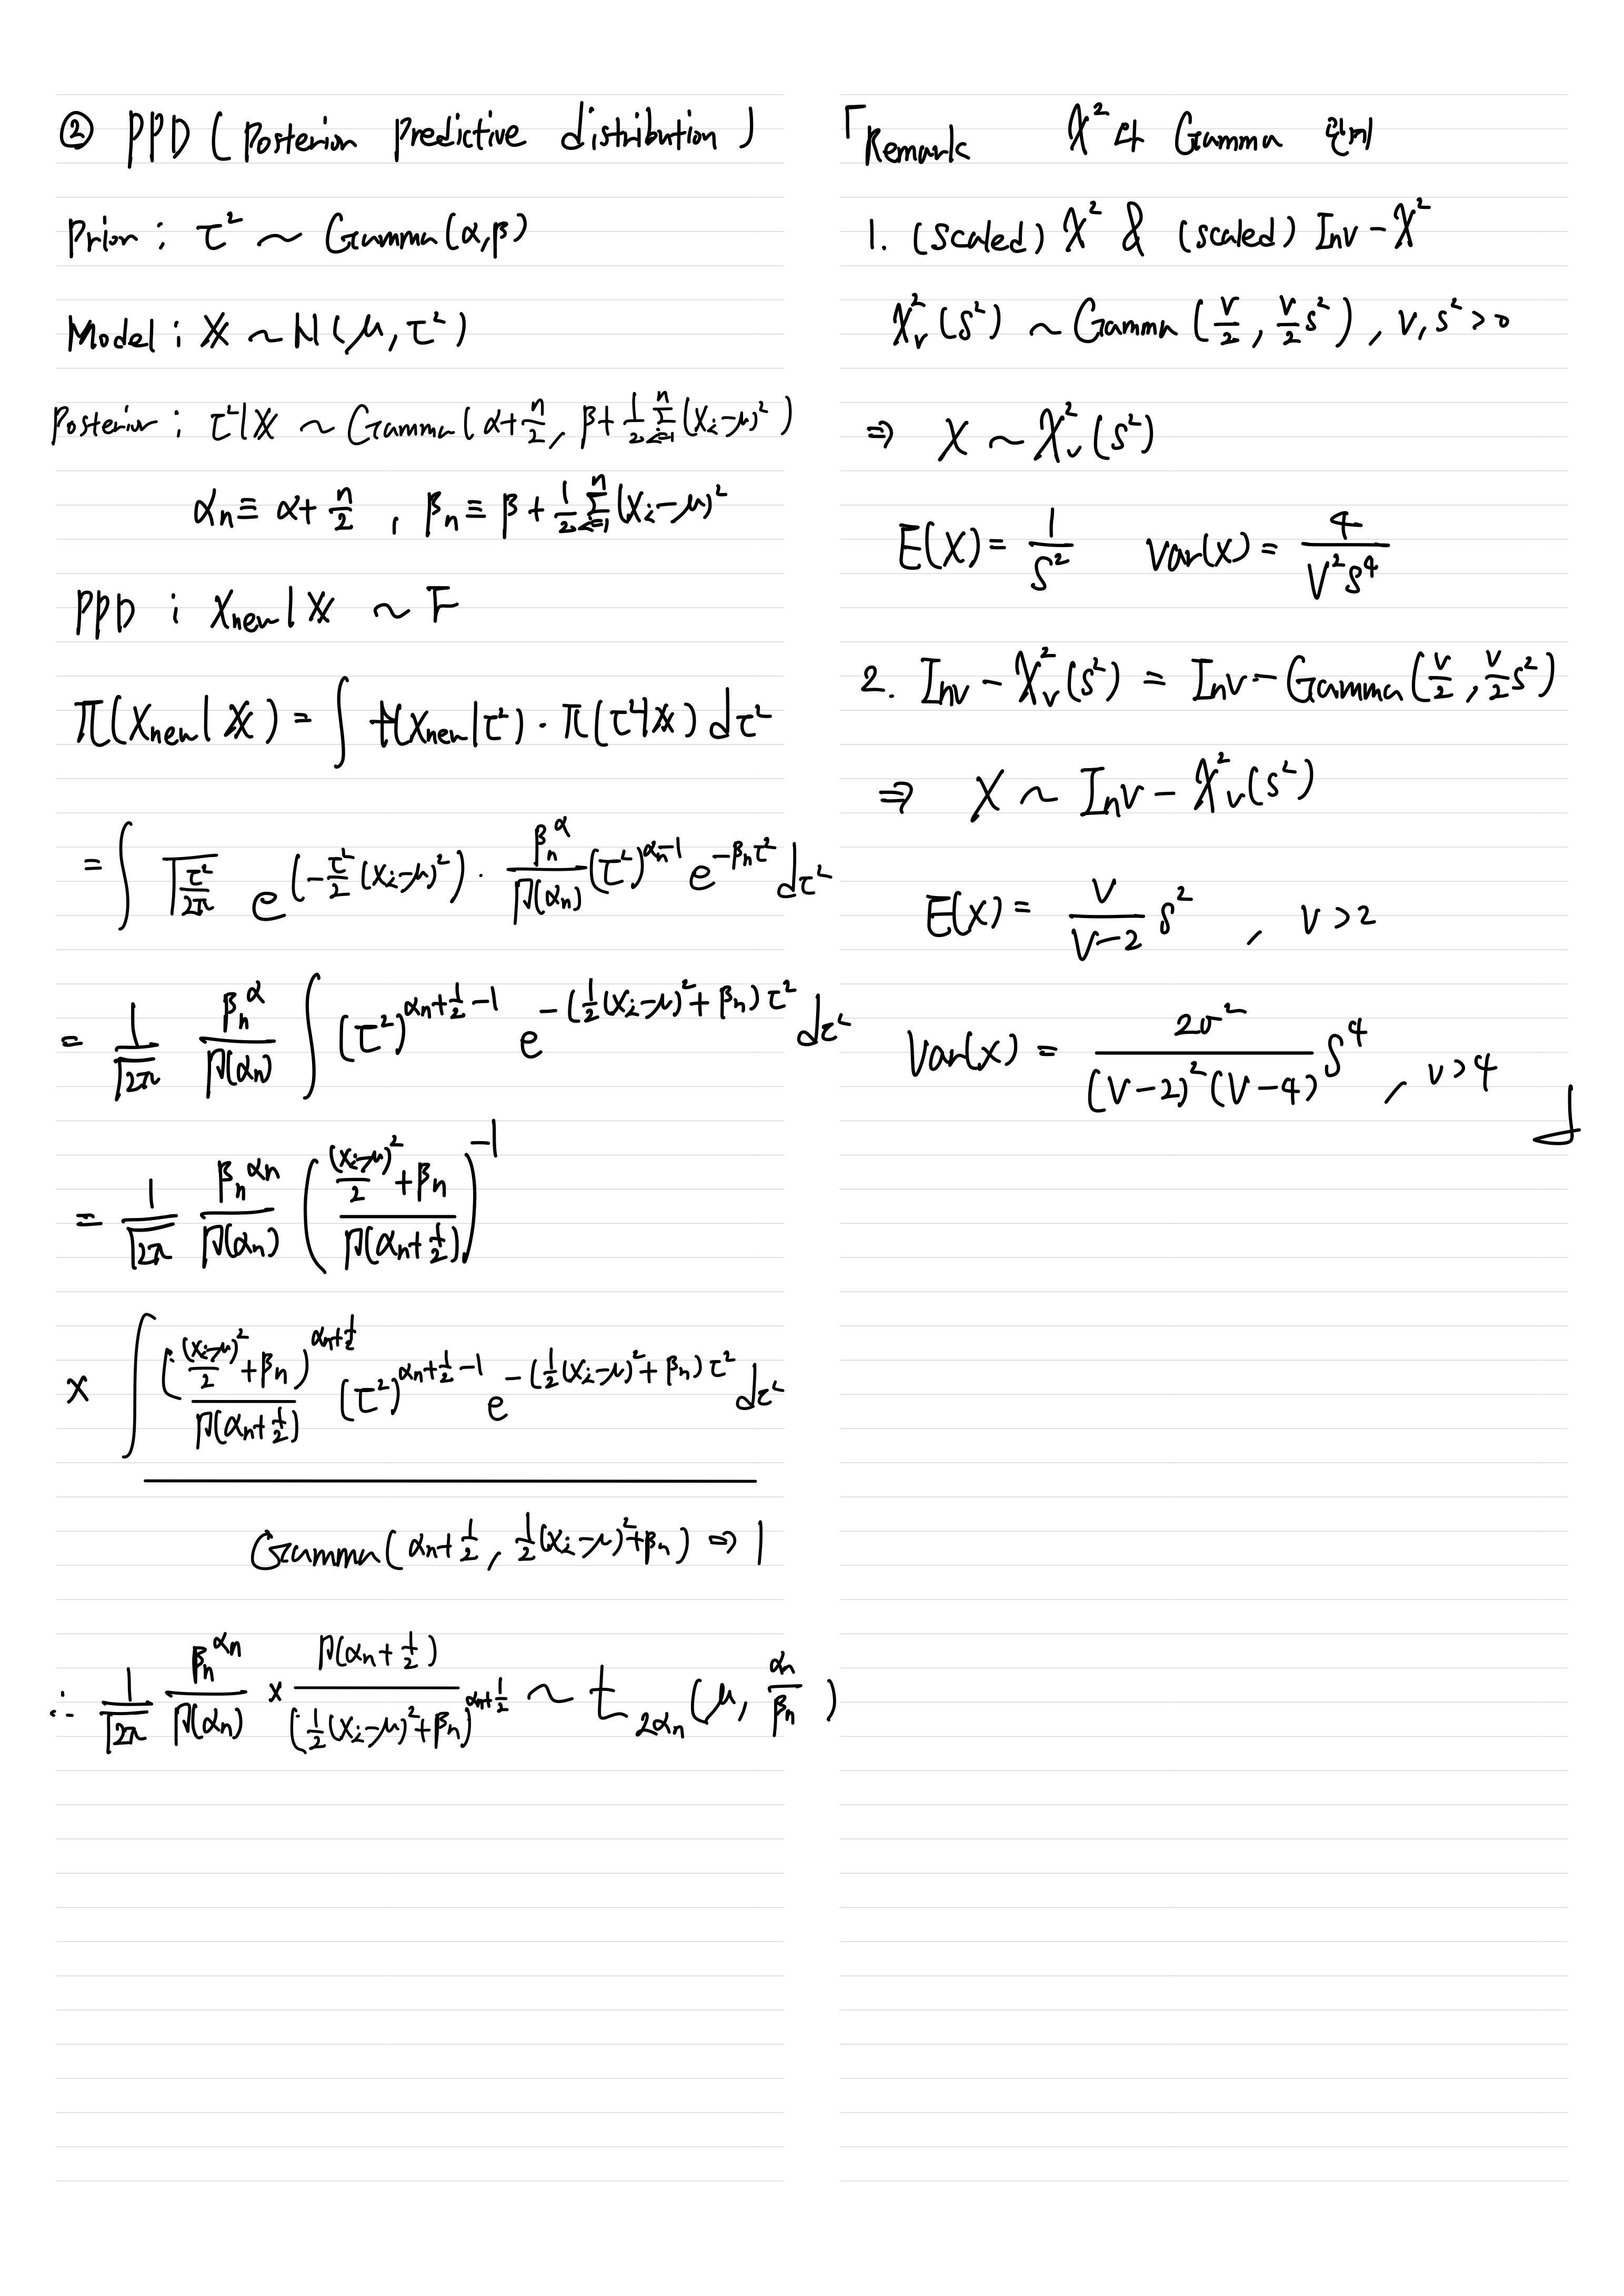 ② PPD ( Posterior Predictive distribution )
Prior : τ² ~ Gamma(α,β)
Model : X ~ N(μ, τ²)
Posterior : τ²|X ~ Gamma( α+n/2, β+1/2 Σⁿᵢ₌₁(Xᵢ-μ)² )
αₙ ≡ α+n/2 , βₙ ≡ β+1/2 Σⁿᵢ₌₁(Xᵢ-μ)²
PPD : Xnew|X ~ F
π(Xnew|X) = ∫ f(Xnew|τ²) · π(τ²|X) dτ²
= ∫ √(τ²/2π) e^(-τ²/2 (Xᵢ-μ)²) · βₙ^α/Γ(αₙ) (τ²)^(αₙ-1) e^(-βₙτ²) dτ²
= 1/√2π βₙ^α/Γ(αₙ) ∫ (τ²)^(αₙ+1/2-1) e^(-(1/2(Xᵢ-μ)²+βₙ)τ²) dτ²
= 1/√2π βₙ^αₙ/Γ(αₙ) ( ((Xᵢ-μ)²/2+βₙ) / Γ(αₙ+1/2) )^-1
× ∫ ((Xᵢ-μ)²/2+βₙ)^(αₙ+1/2) / Γ(αₙ+1/2) (τ²)^(αₙ+1/2-1) e^(-(1/2(Xᵢ-μ)²+βₙ)τ²) dτ²
Gamma(αₙ+1/2, 1/2(Xᵢ-μ)²+βₙ) ⇒ 1
∴ 1/√2π βₙ^αₙ/Γ(αₙ) × Γ(αₙ+1/2) / (1/2(Xᵢ-μ)²+βₙ)^(αₙ+1/2) ~ t₂αₙ(μ, αₙ/βₙ)
「Remark χ² 와 Gamma
1. (scaled) χ² & (scaled) Inv-χ²
χ²ᵥ(s²) ~ Gamma(v/2, v/2 s²) , v, s² > 0
⇒ X ~ χ²ᵥ(s²)
E(X) = 1/s² Var(x) = 4/(v²s⁴)
2. Inv-χ²ᵥ(s²) = Inv-Gamma(v/2, v/2 s²)
⇒ X ~ Inv-χ²ᵥ(s²)
E(x) = v/(v-2) s² , v>2
Var(x) = 2σ²/((v-2)²(v-4)) s⁴ , v>4 」